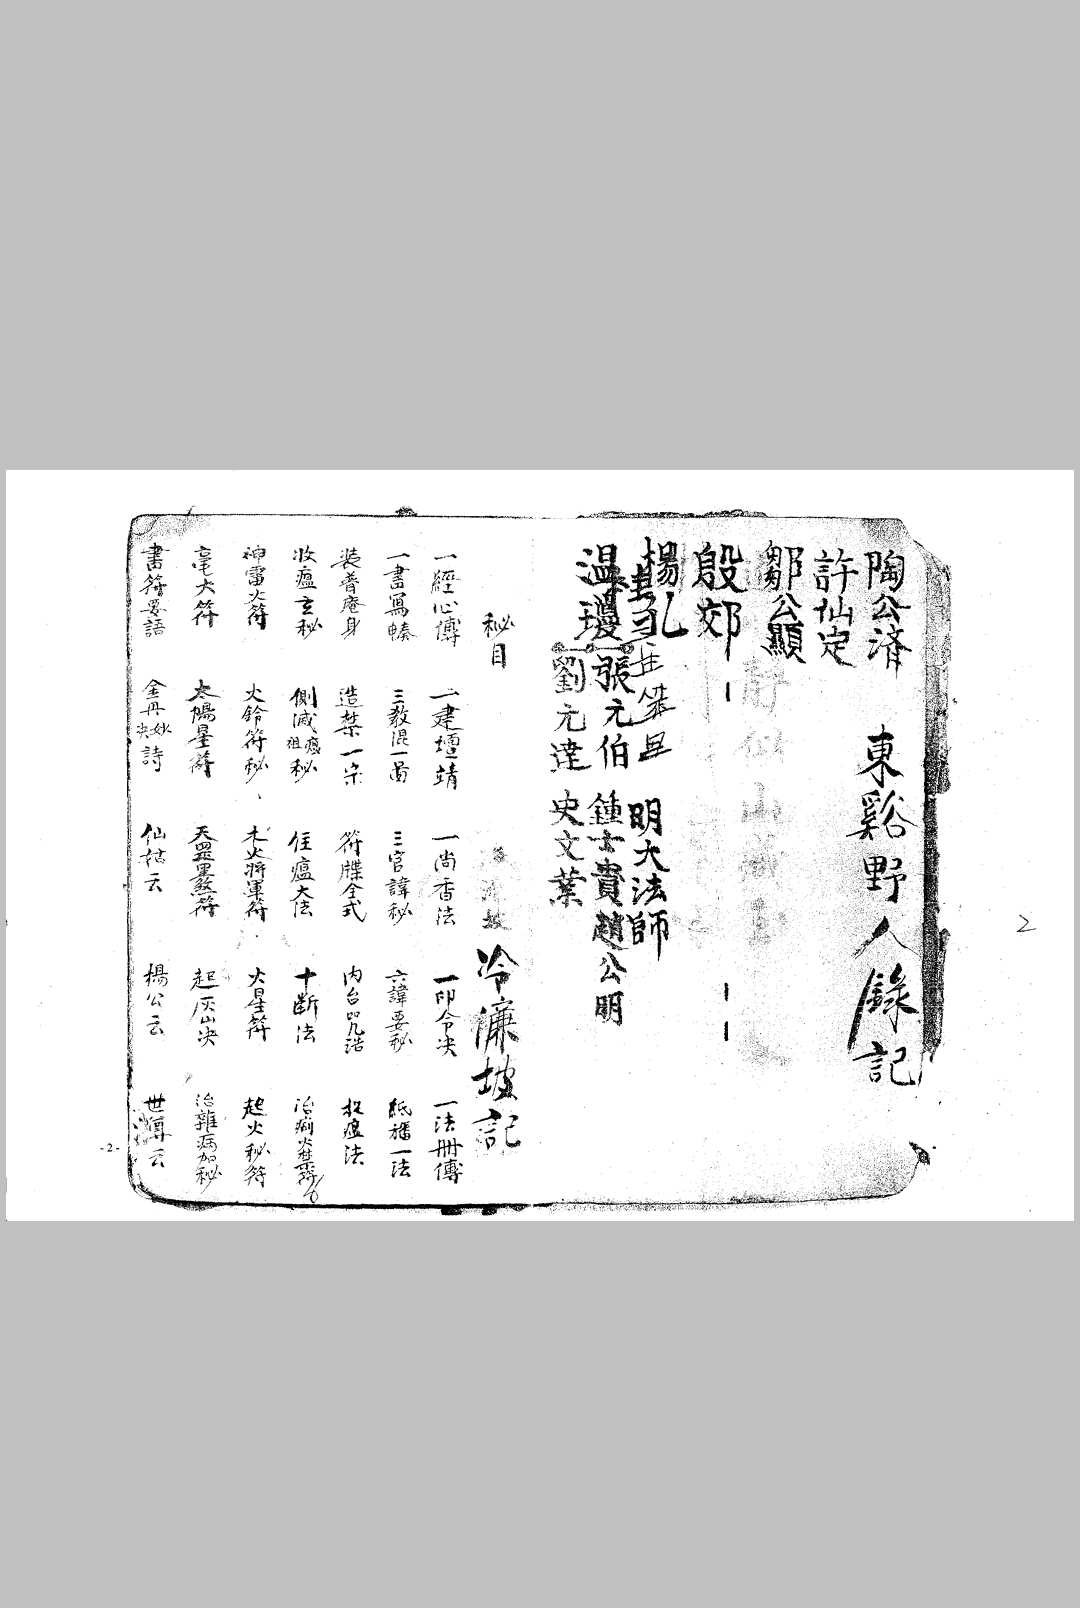 陶公濟
東谿野人錄記
許仙定
鄒公顯
殷郊
楊彪
明大法師
温瓊
張元伯 鍾士貴 趙公明
劉元達 史文業
秘目
冷廉坡記
一經心傳 一建壇靖 一尚香法 一印令决 一法冊傳
一畫寫 三教混一 三官諱秘 六諱要秘 紙旛一法
裝普庵身 造禁一宗 符牒全式 内台咒誥 捉瘟法
收瘟玄秘 側滅 秘 住瘟大法 十断法 治痢火禁符
神雷火符 火鈴符秘 木火將軍符 火星符 起火秘符
毫火符 太陽星符 天罡黑煞符 起灰山决 治雜病加秘
書符畧語 金丹妙决詩 仙姑云 楊公云 世尊云
-2-
2